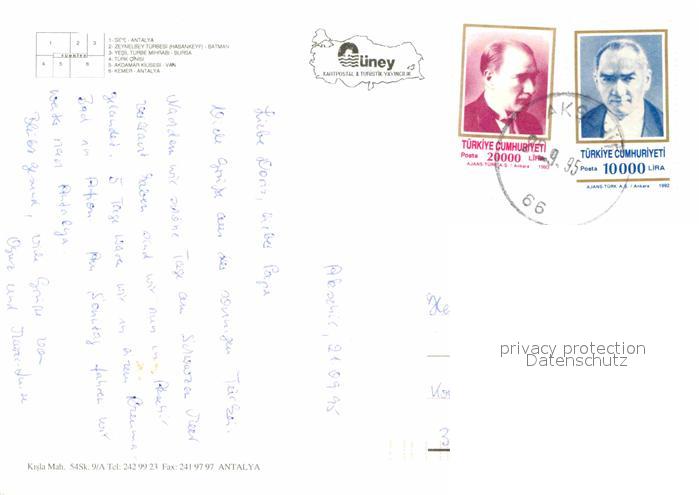 1 2 3
TÜRKİYE
4 5 6
1- SİDE - ANTALYA
2- ZEYNELBEY TÜRBESİ (HASANKEYF) - BATMAN
3- YEŞİL TÜRBE MİHRABI - BURSA
4- TÜRK ÇİNİSİ
5- AKDAMAR KİLİSESİ - VAN
6- KEMER - ANTALYA
Güney
KARTPOSTAL & TURİSTİK YAYINCILIK
TÜRKİYE CUMHURİYETİ
Posta 20000 LİRA
AJANS-TÜRK A.Ş. / Ankara 1992
TÜRKİYE CUMHURİYETİ
Posta 10000 LİRA
AJANS-TÜRK A.Ş. / Ankara 1992
AKS
9.95
66
Akşehir, 21.09.95
Liebe Doris, lieber Papa
Viele Grüße aus der sonnigen Türkei.
Nachdem wir schöne Tage am Schwarzen Meer
verbracht haben sind wir nun in Akşehir
gelandet. 5 Tage waren wir in einem
Bad in Afyon. Am Sonntag fahren wir
weiter nach Antalya.
Bleibt gesund, viele Grüße von
und
privacy protection
Datenschutz
Kışla Mah. 54Sk. 9/A Tel: 242 99 23 Fax: 241 97 97 ANTALYA